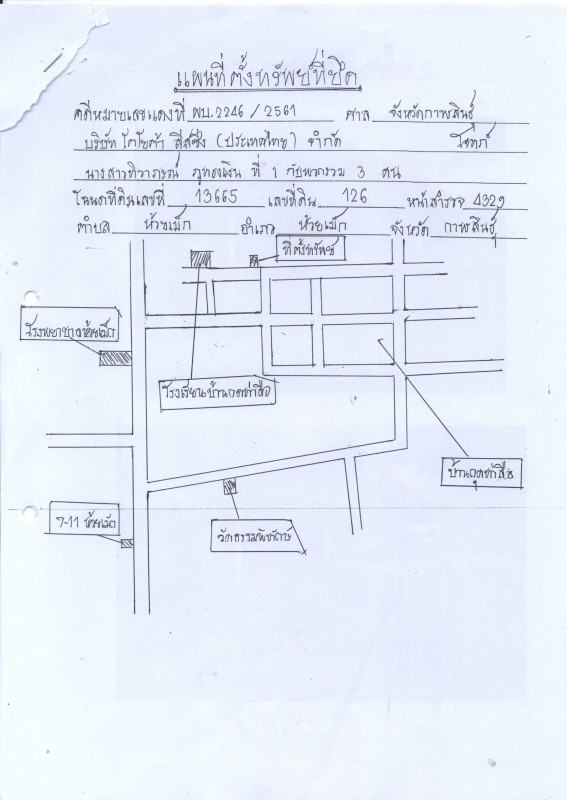 แผนที่ตั้งทรัพย์ที่ยึด
คดีหมายเลขแดงที่ ผบ.2246 / 2561 ศาล จังหวัดกาฬสินธุ์
บริษัท โตโยต้า ลีสซิ่ง (ประเทศไทย) จำกัด โจทก์
นางสาวทิวาภรณ์ ภูทองเงิน ที่ 1 กับพวกรวม 3 คน
โฉนดที่ดินเลขที่ 13665 เลขที่ดิน 126 หน้าสำรวจ 4329
ตำบล ห้วยเม็ก อำเภอ ห้วยเม็ก จังหวัด กาฬสินธุ์
ที่ตั้งทรัพย์
โรงพยาบาลห้วยเม็ก
โรงเรียนบ้านกุดท่าลือ
บ้านกุดท่าลือ
7-11 ห้วยเม็ก
วัดธรรมพิทักษ์